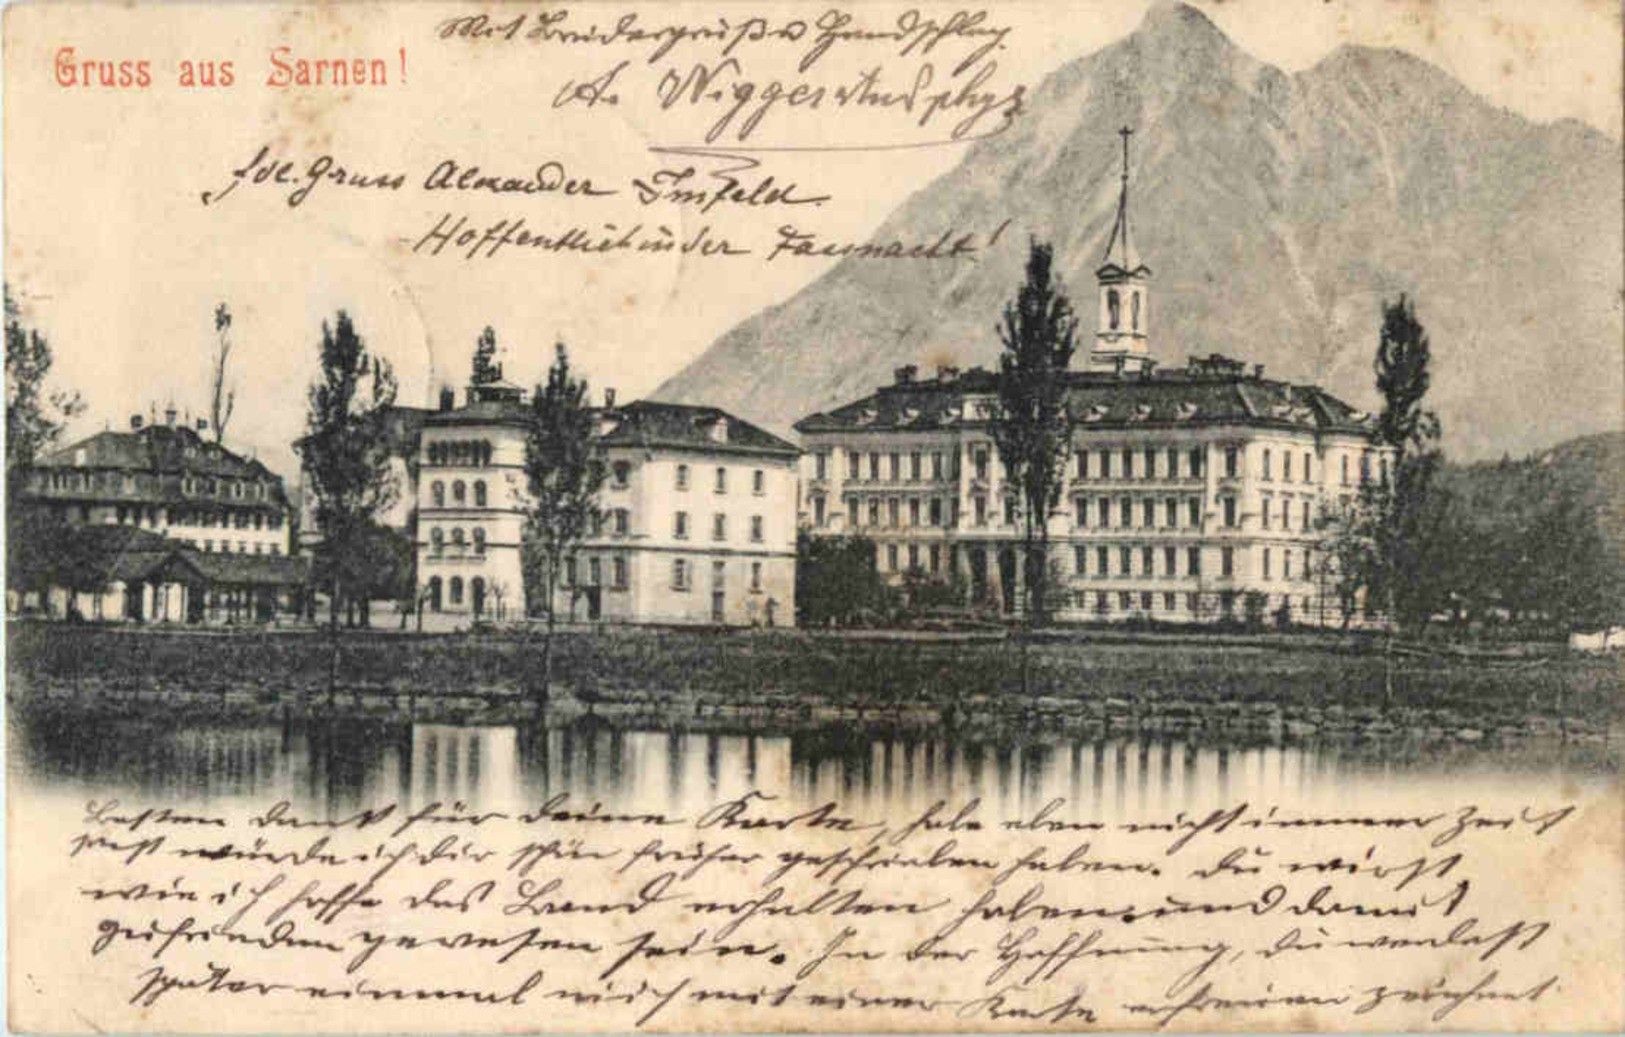 Gruss aus Sarnen!
Mit Brudergruß u Handschlag
A. Wigger stud phys
fdl. Gruss Alexander Imfeld.
Hoffentlich in der Fasnacht!
Besten Dank für deine Karte, habe eben nicht immer Zeit
sonst würde ich dir schön früher geschrieben haben. Du wirst
wie ich hoffe das Band erhalten haben und damit
zufrieden gewesen sein. In der Hoffnung, du werdest
später einmal mich mit einer Karte erfreuen zeichnet